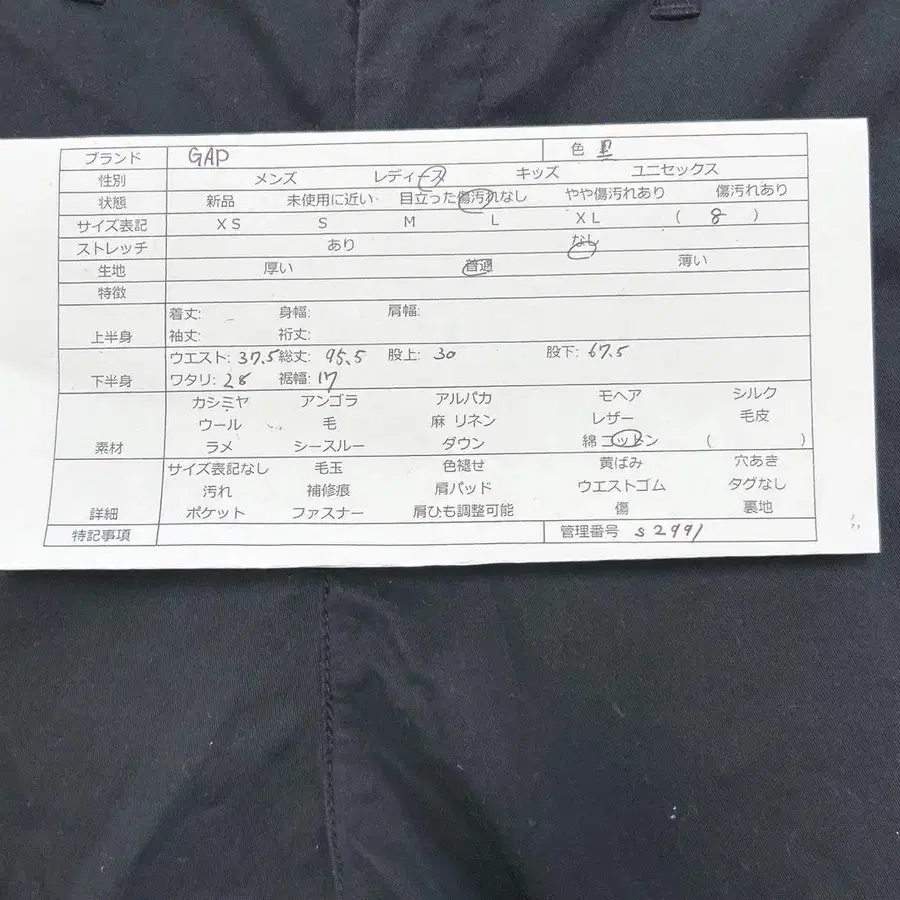 ブランド GAP 色 黒
性別 メンズ レディース キッズ ユニセックス
状態 新品 未使用に近い 目立った傷汚れなし やや傷汚れあり 傷汚れあり
サイズ表記 XS S M L XL ( 8 )
ストレッチ あり なし
生地 厚い 普通 薄い
特徴
上半身 着丈: 身幅: 肩幅:
袖丈: 裄丈:
下半身 ウエスト: 37.5 総丈: 95.5 股上: 30 股下: 67.5
ワタリ: 28 裾幅: 17
カシミヤ アンゴラ アルパカ モヘア シルク
ウール 毛 麻 リネン レザー 毛皮
素材 ラメ シースルー ダウン 綿 コットン ( )
サイズ表記なし 毛玉 色褪せ 黄ばみ 穴あき
汚れ 補修痕 肩パッド ウエストゴム タグなし
詳細 ポケット ファスナー 肩ひも調整可能 傷 裏地
特記事項 管理番号 s2991